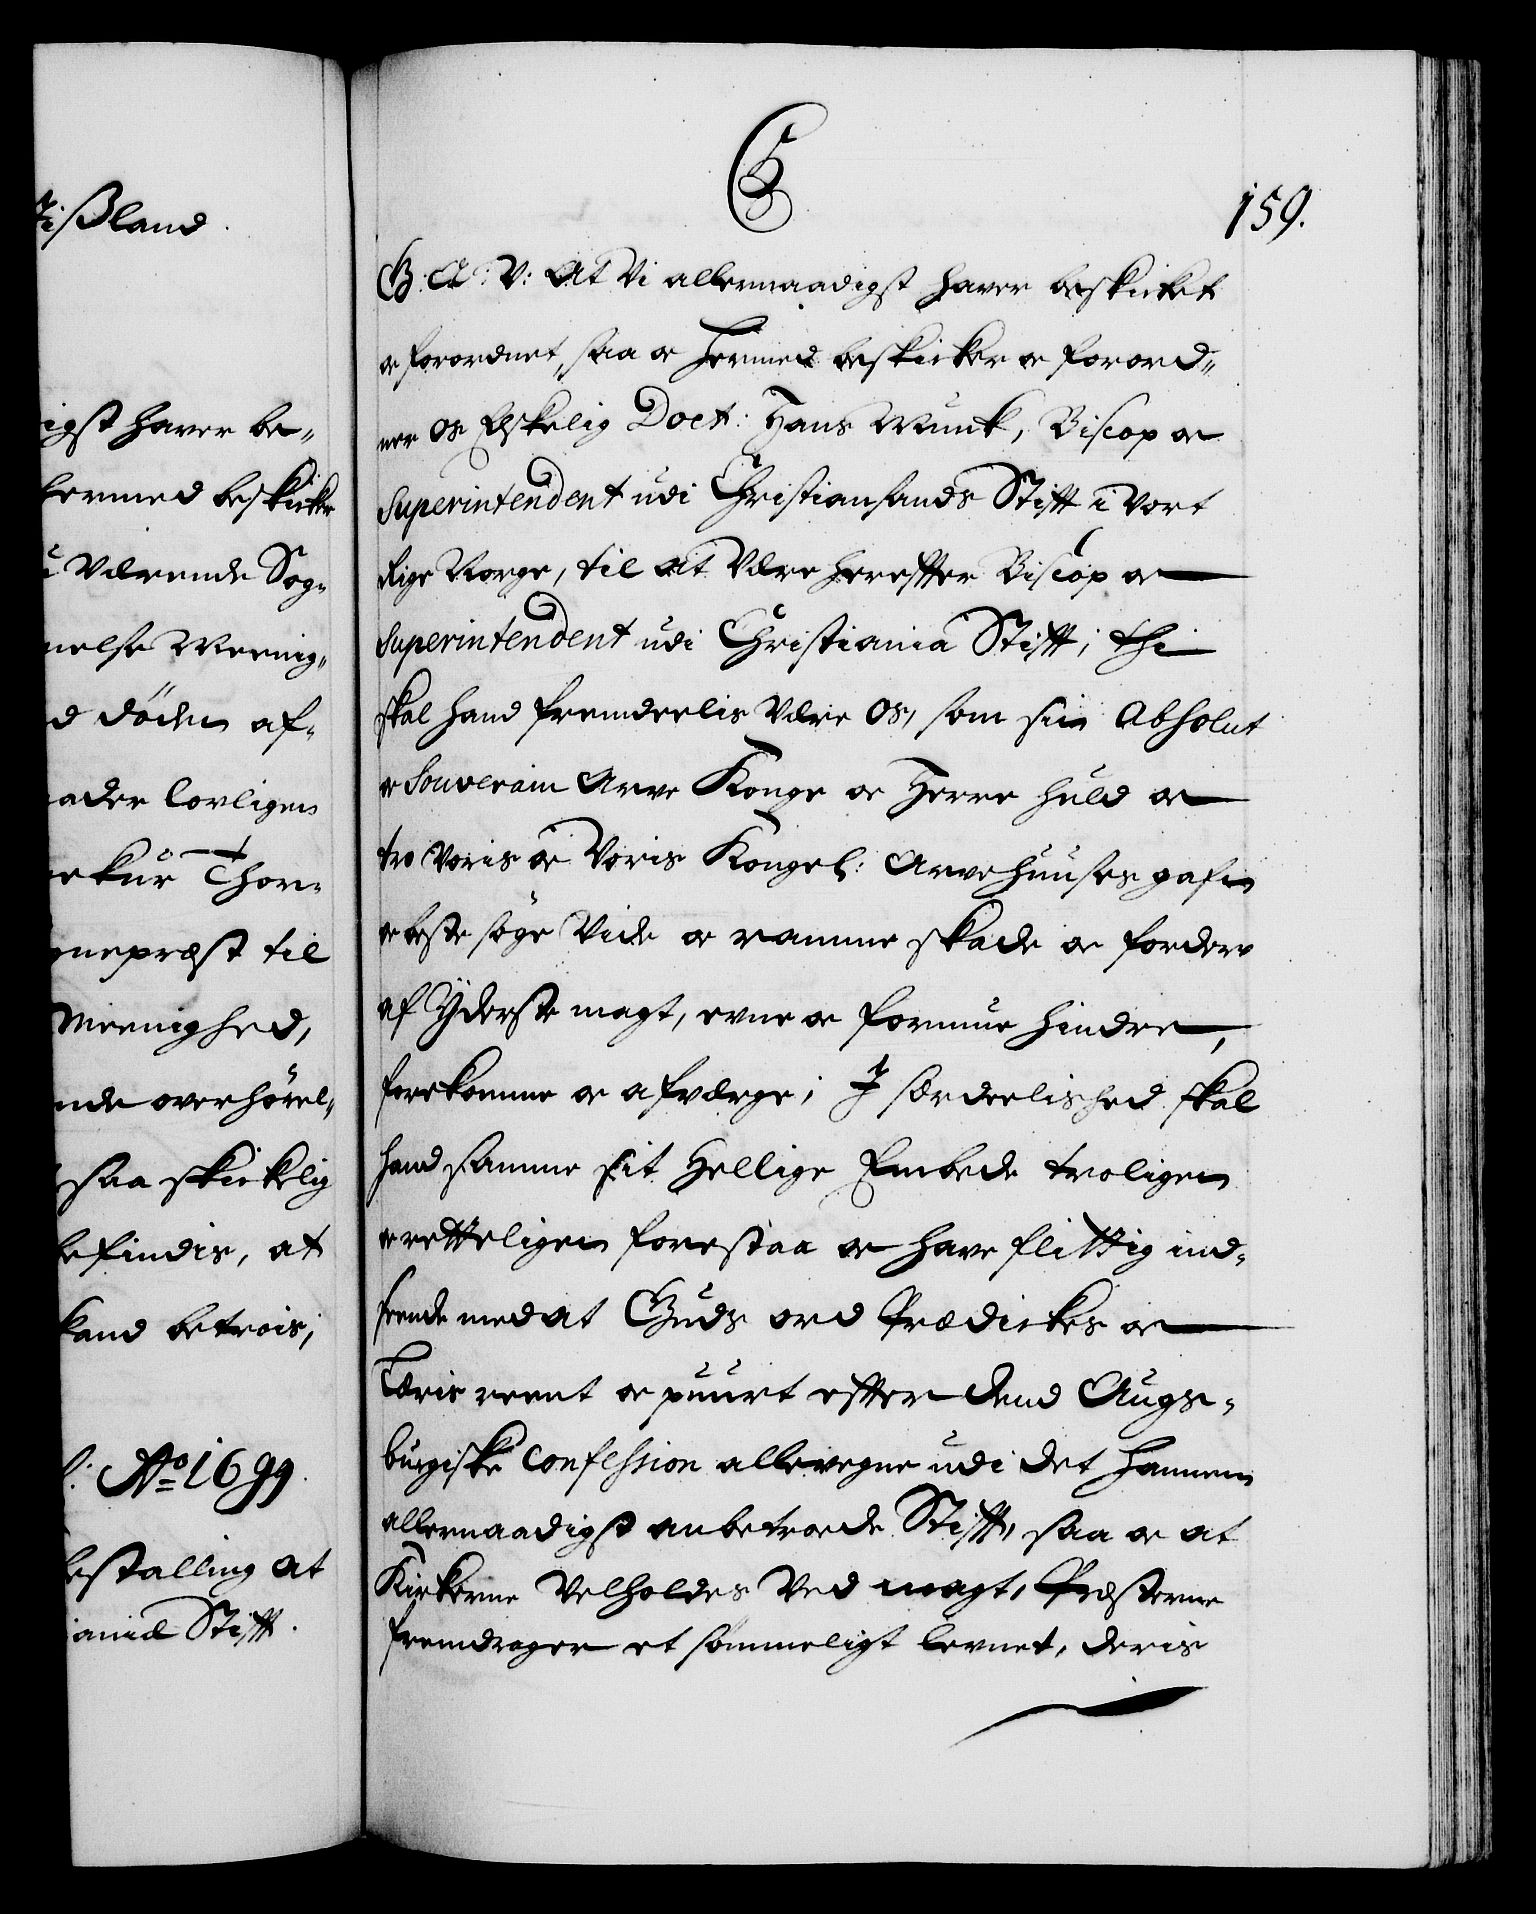 ißland.
igst haver be-
hermed beskicke
i Værende Sog-
nelse Meenig-
d döden af-
ader lovligen
Thor-
gnepræst til
Meenighed,
nde overhörel-
saa skickelig
befindis, at
kand betrois;
Ao 1699.
bestalling at
iania Stift.
C5
159.
G. A: V: At Vi allernaadigst haver beskicket
oc forordnet, saa oc hermed beskicker oc forord-
ner Os Elskelig Doct: Hans Munk, Biscop oc
Superintendent udi Christiansands Stift i Vort
Rige Norge, til at Være herefter Biscop oc
Superintendent udi Christiania Stift; thi
skal hand fremdeelis Være Os, som sin Absolut
oc Souverain Arve Konge oc Herre huld oc
tro Voris oc Voris Kongel: Arvehuuses gafn
oc beste söge Vide oc ramme skade oc forderv
af Yderste magt, evne oc formue hindre,
forekomme oc afværge; I særdeelished skal
hand samme sit Hellige Embede troligen
oc retteligen forestaa oc have flittig ind-
seende med at Guds ord Prædickes oc
Læris reent oc puurt efter dend Augs-
burgiske Confession allevegne udi det hannem
allernaadigst anbetroede Stift, saa oc at
Kirkerne Velholdes Ved magt, Præsterne
fremdrager et sömmeligt levnet, deris